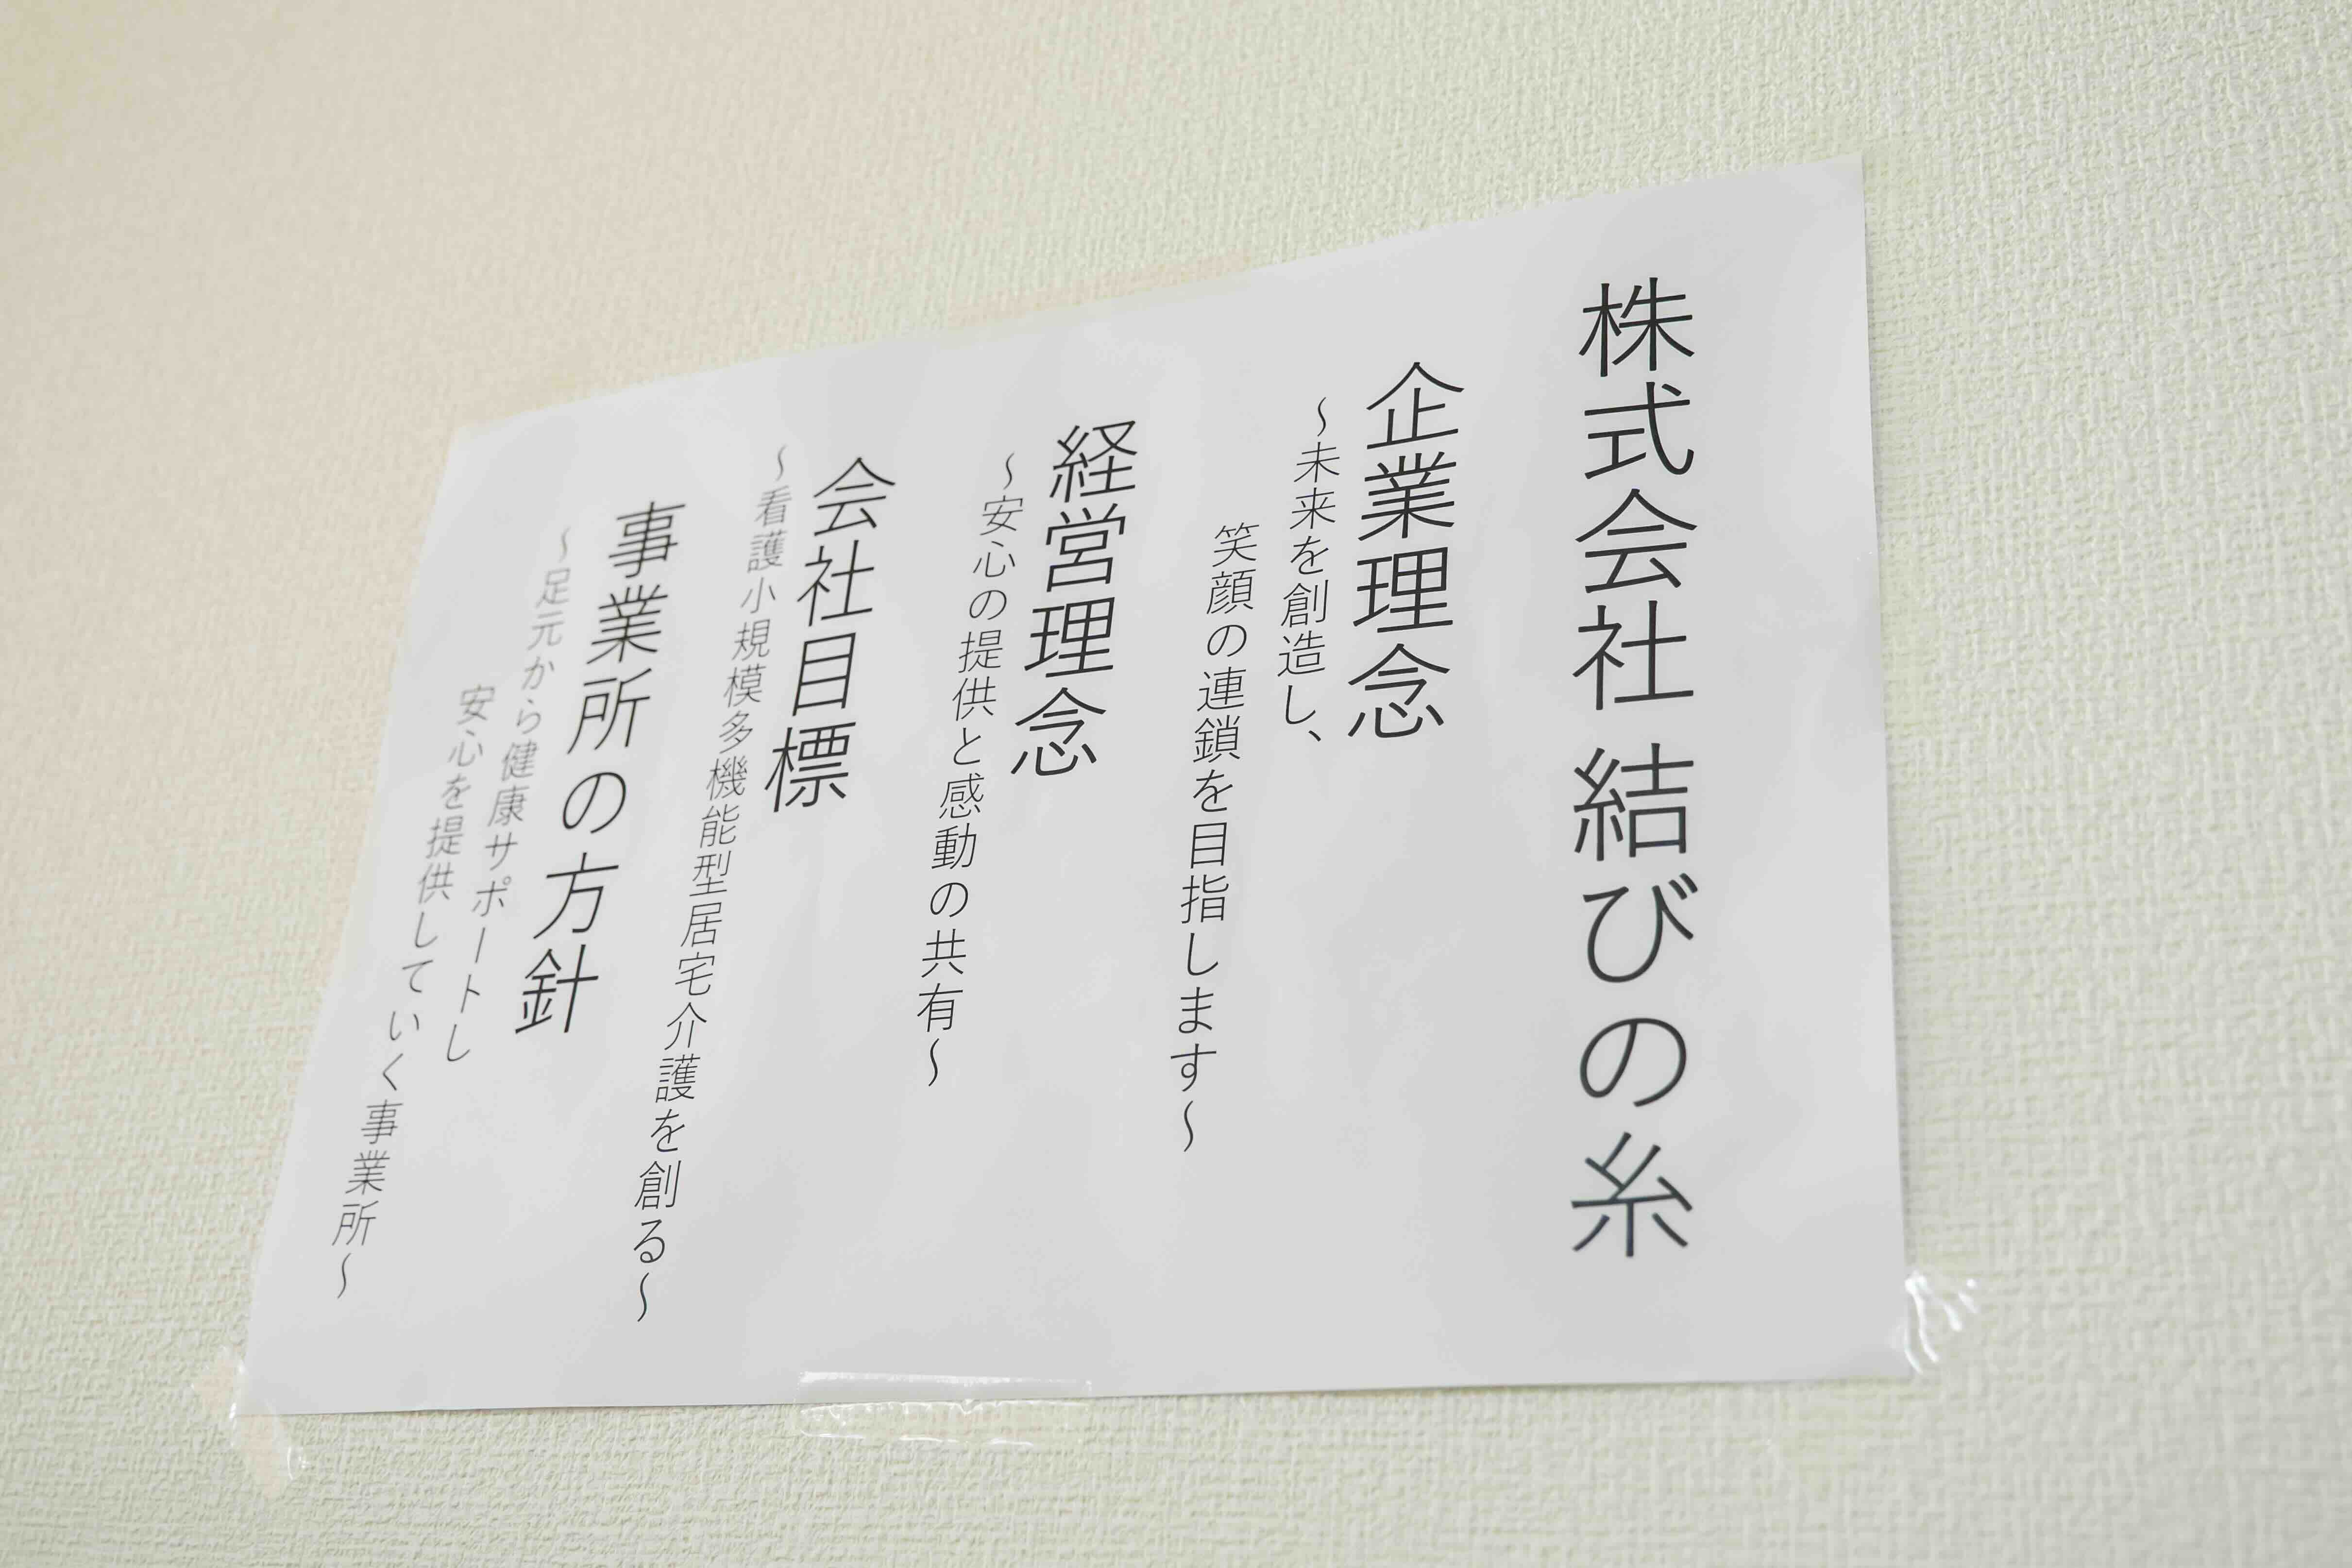 株式会社 結びの糸
企業理念
～未来を創造し、
笑顔の連鎖を目指します～
経営理念
～安心の提供と感動の共有～
会社目標
～看護小規模多機能型居宅介護を創る～
事業所の方針
～足元から健康サポートし
安心を提供していく事業所～